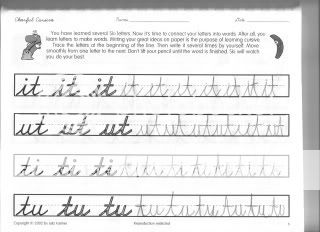 Cheerful Cursive Name Date
You have learned several Ski letters. Now it's time to connect your letters into words. After all, you
learn letters to make words. Writing your great ideas on paper is the purpose of learning cursive.
Trace the letters at the beginning of the line. Then write it several times by yourself. Move
smoothly from one letter to the next. Don't lift your pencil until the word is finished. Ski will watch
you do your best.
it it it it it it it it it it it
ut ut ut ut ut ut ut ut ut ut
ti ti ti ti ti ti ti ti ti ti
tu tu tu tu tu tu tu tu tu
Copyright © 2002 by Reproduction restricted